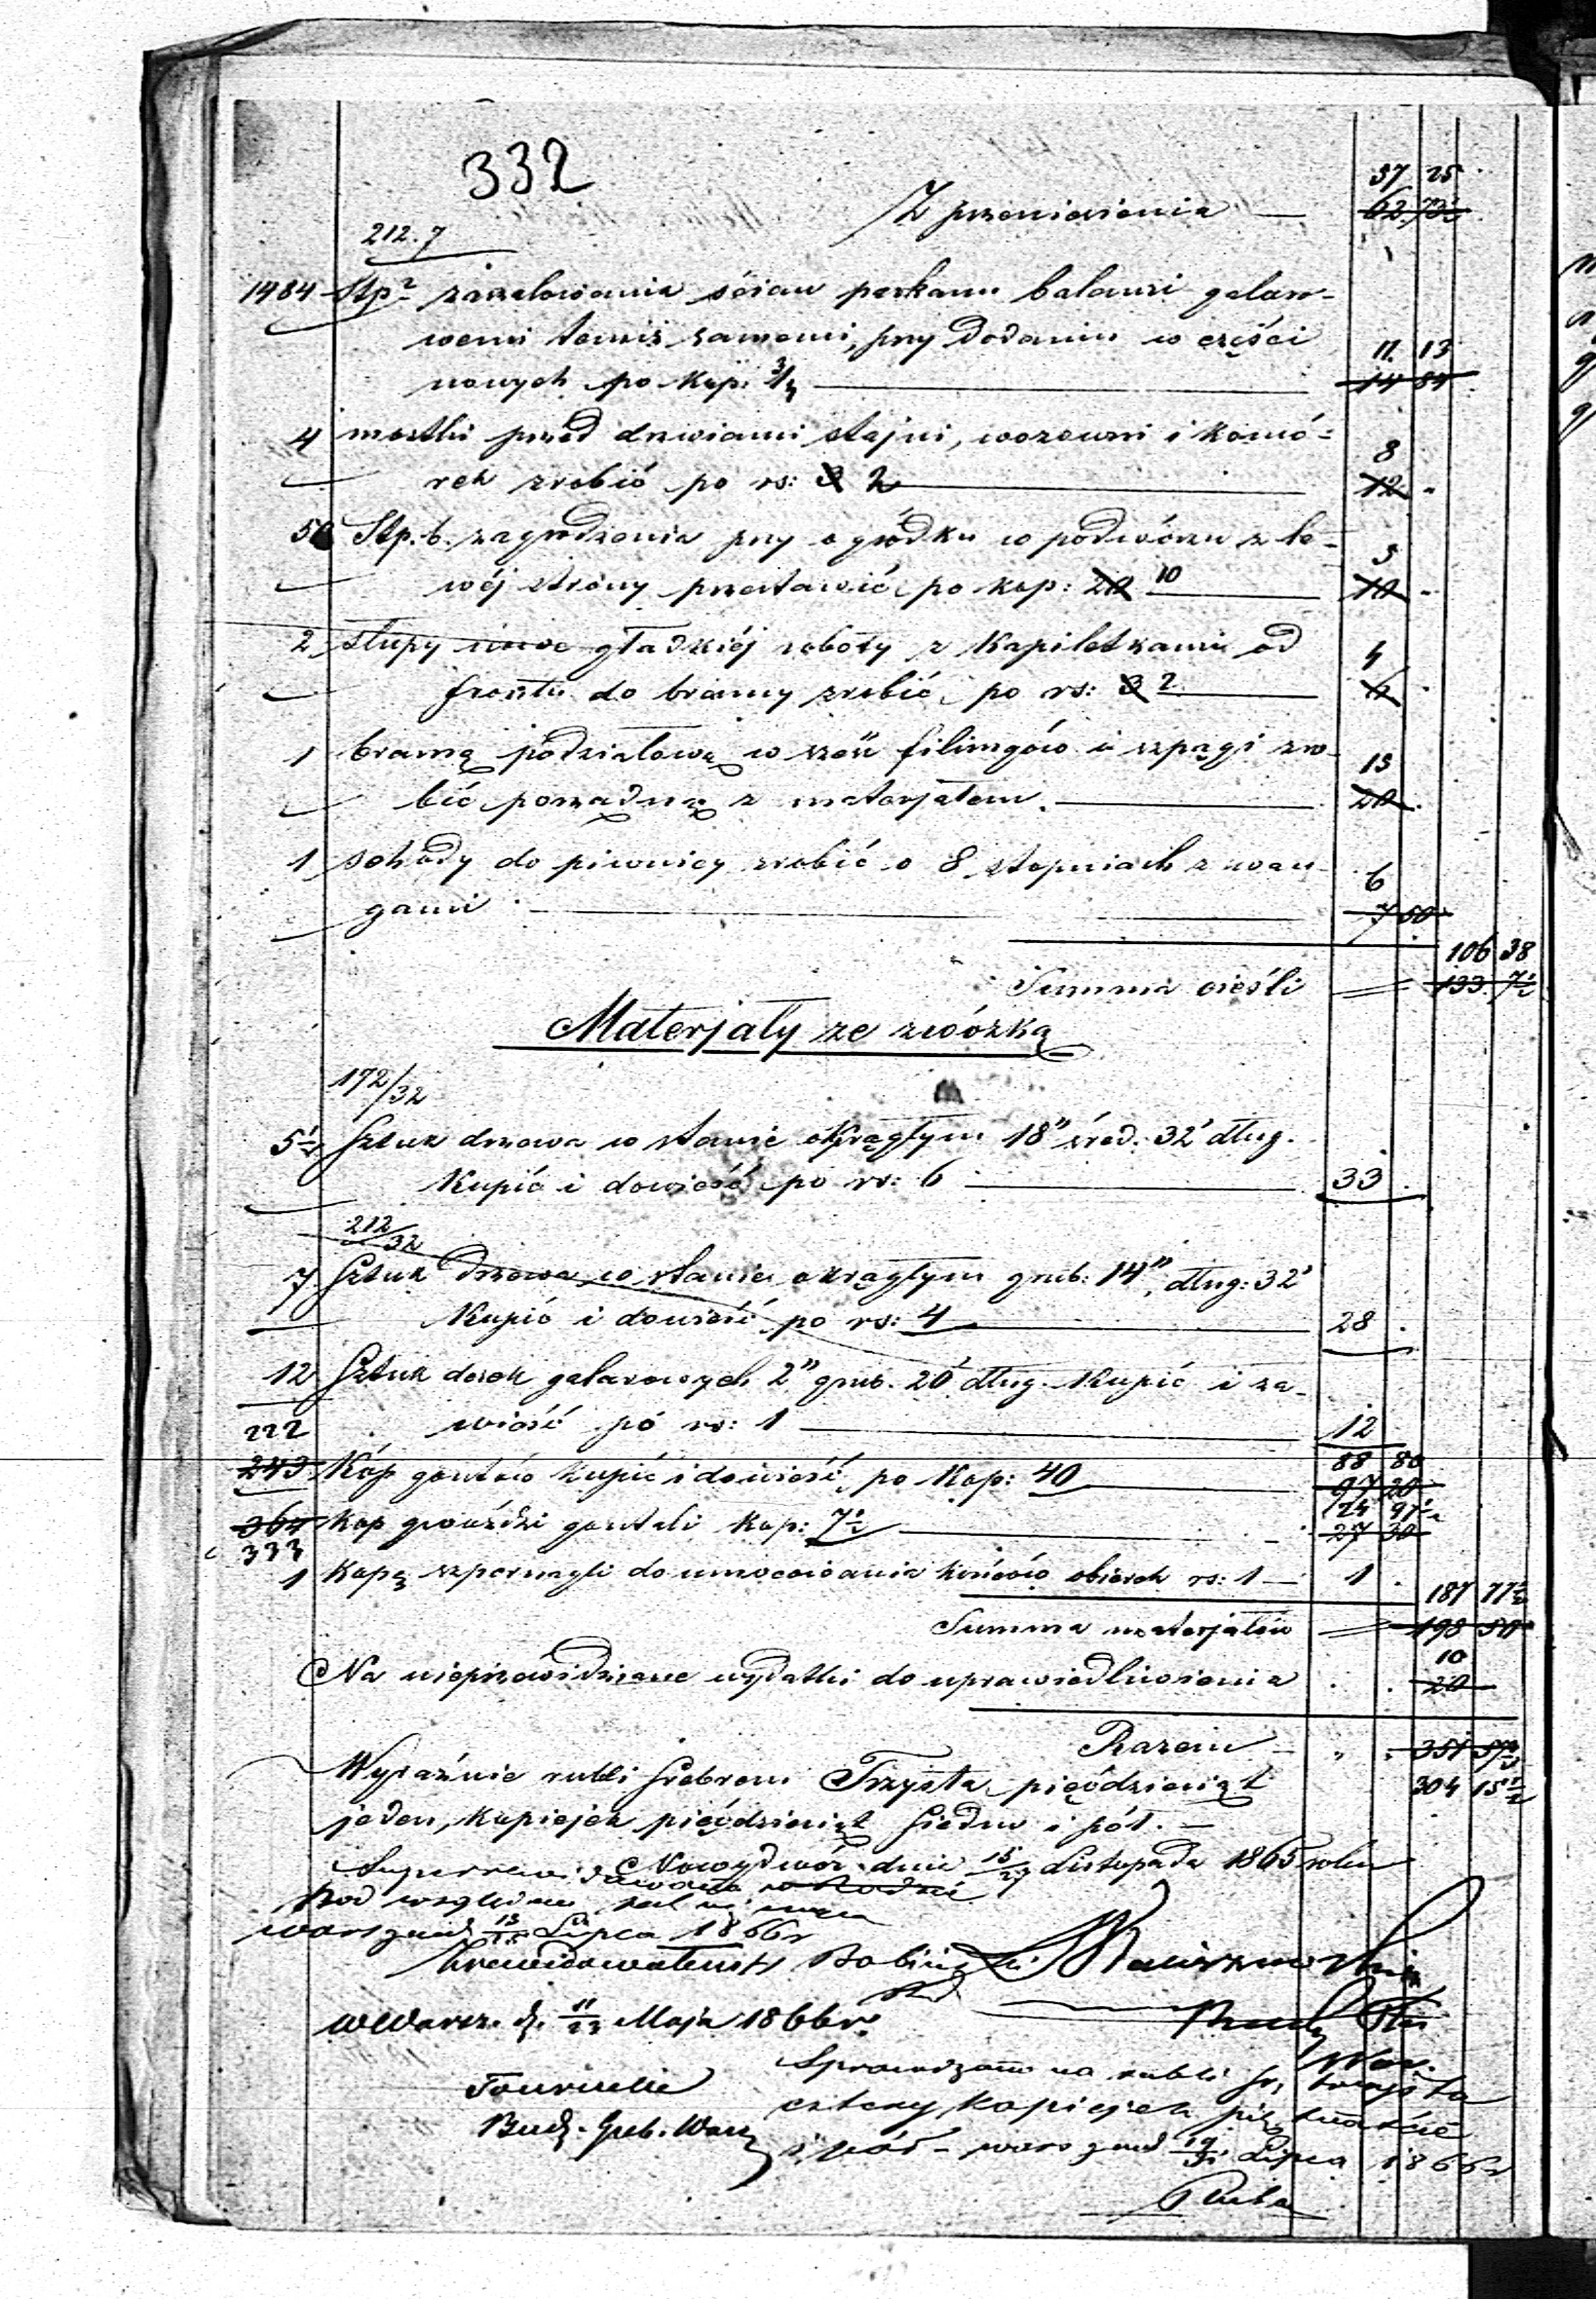 332
37 25
Z przeniesienia — 62 73½
212.7
1484 Stp² zaszalowania ścian parkanu balami galaro-
wemi temiż samemi, przy dodaniu w części
11. 13
nowych po kop: ¾ 14 84
4 mostki przed drzwiami stajni, wozowni i komó-
8
rek zrobić po rs: 3 2 12 -
50 Stp. b. zagrodzenia przy ogródku w podwórzu z le-
5
wéj strony przestawić po kop: 20 10 10 -
2 słupy nowe gładkiéj roboty z kapiletkami od
4
frontu do bramy zrobić po rs: 3 2 6
1 bramę podziałową w sześć filingów i szpągi zro-
15
bić porządną z materjałem. 20
1 schody do piwnicy zrobić o 8 stopniach z wan-
6
gami 7 50
106 38
Summa cieśli 133. 7½
Materjały ze zwózką
172/32
5½ Sztuk drzewa w stanie okrągłym 18" śred. 32' dług.
Kupić i dowieść po rs: 6 33
212/32
7 Sztuk drzewa w stanie okrągłym grub: 14", dług: 32'
Kupić i dowieść po rs: 4 28
12 Sztuk desek galarowych 2" grub. 20' dług. Kupić i za-
wieść po rs: 1 12
222 88 80
243 Kóp gontów kupić i dowieść po kop: 40 97 20
24 97½
364 Kop gwoździ gontali kop: 7½ 27 30
333
1 Kopę szpernagli do umocowania końców rs: 1 — 1
187 77½
Summa materjałów 198 50
10
Na nieprzewidziane wydatki do uprawiedliwienia 20
Razem 351 57½
304 15½
Wyraźnie rubli srebrem Trzysta pięćdziesiąt
jeden, kopiejek pięćdziesiąt siedm i pół. —
Nowydwór dnia 15/27 Listopada 1865 roku
Pod względem
Lipca 1866 r
w Warsz. d. 11/23 Maja 1866 r.
Sprawdzam na rubli sr, trzysta
cztery, kopiejek piętnaście
Bud. Gub. Warz
i pół - Lipca 1866 r